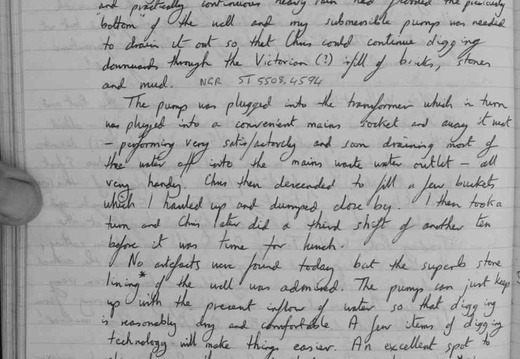 and practically continuous heavy rain had flooded the previously
"bottom" of the well and my submersible pump was needed
to drain it out so that Chris could continue digging
downwards through the Victorian (?) infill of bricks, stones
and mud. NGR ST 5508.4594
The pump was plugged into the transformer which in turn
was plugged into a convenient mains socket and away it went
- performing very satisfactorily and soon draining most of
the water off into the mains waste water outlet - all
very handy. Chris then descended to fill a few buckets
which I hauled up and dumped close by. I then took a
turn and Chris later did a third shift of another ten
before it was time for lunch.
No artefacts were found today but the superb stone
lining* of the well was admired. The pump can just keep
up with the present inflow of water so that digging
is reasonably dry and comfortable. A few items of digging
technology will make things easier. An excellent spot to